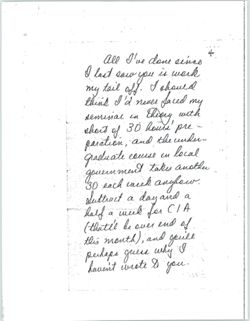 4
All I've done since
I last saw you is work
my tail off. I should
think I'd never faced my
seminar in theory with
short of 30 hours' pre-
paration, and the under-
graduate course in local
government takes another
30 each week anyhow.
Subtract a day and a
half a week for CIA
(that'll be over end of
this month), and you'll
perhaps guess why I
haven't wrote to you.